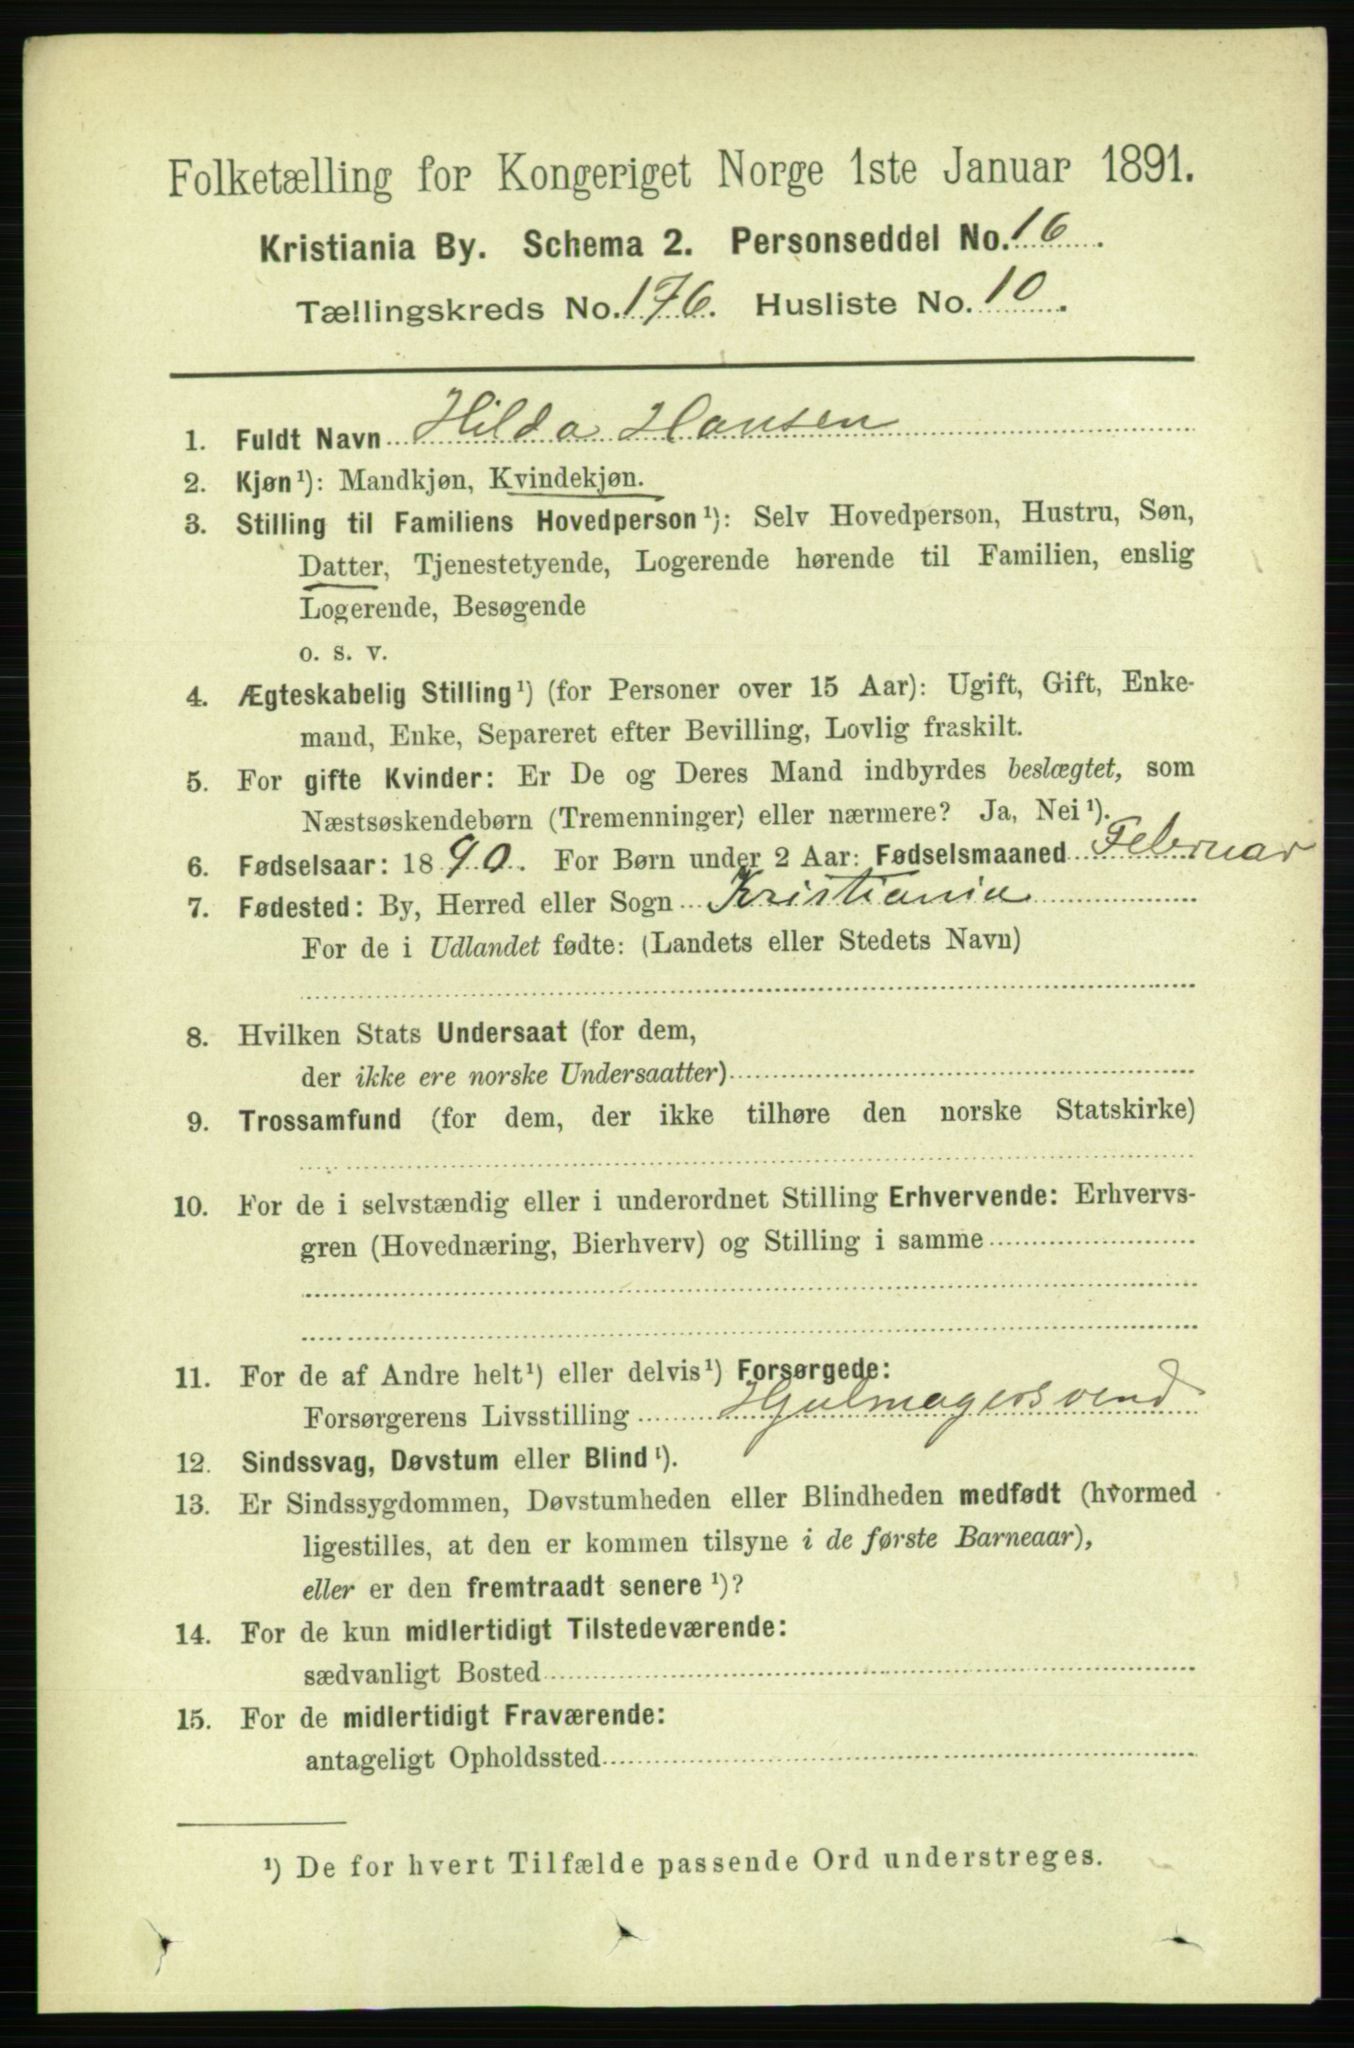 Folketælling for Kongeriget Norge 1ste Januar 1891.
Kristiania By. Schema 2. Personseddel No. 16.
Tællingskreds No. 176. Husliste No. 10.
1. Fuldt Navn Hilda Hansen
2. Kjøn¹): Mandkjøn, Kvindekjøn.
3. Stilling til Familiens Hovedperson¹): Selv Hovedperson, Hustru, Søn,
Datter, Tjenestetyende, Logerende hørende til Familien, enslig
Logerende, Besøgende
o. s. v.
4. Ægteskabelig Stilling¹) (for Personer over 15 Aar): Ugift, Gift, Enke-
mand, Enke, Separeret efter Bevilling, Lovlig fraskilt.
5. For gifte Kvinder: Er De og Deres Mand indbyrdes beslægtet, som
Næstsøskendebørn (Tremenninger) eller nærmere? Ja, Nei¹).
6. Fødselsaar: 1890. For Børn under 2 Aar: Fødselsmaaned Februar
7. Fødested: By, Herred eller Sogn Kristiania
For de i Udlandet fødte: (Landets eller Stedets Navn)
8. Hvilken Stats Undersaat (for dem,
der ikke ere norske Undersaatter)
9. Trossamfund (for dem, der ikke tilhøre den norske Statskirke)
10. For de i selvstændig eller i underordnet Stilling Erhvervende: Erhvervs-
gren (Hovednæring, Bierhverv) og Stilling i samme
11. For de af Andre helt¹) eller delvis¹) Forsørgede:
Forsørgerens Livsstilling Hjulmagersvend
12. Sindssvag, Døvstum eller Blind¹).
13. Er Sindssygdommen, Døvstumheden eller Blindheden medfødt (hvormed
ligestilles, at den er kommen tilsyne i de første Barneaar),
eller er den fremtraadt senere¹)?
14. For de kun midlertidigt Tilstedeværende:
sædvanligt Bosted
15. For de midlertidigt Fraværende:
antageligt Opholdssted
¹) De for hvert Tilfælde passende Ord understreges.